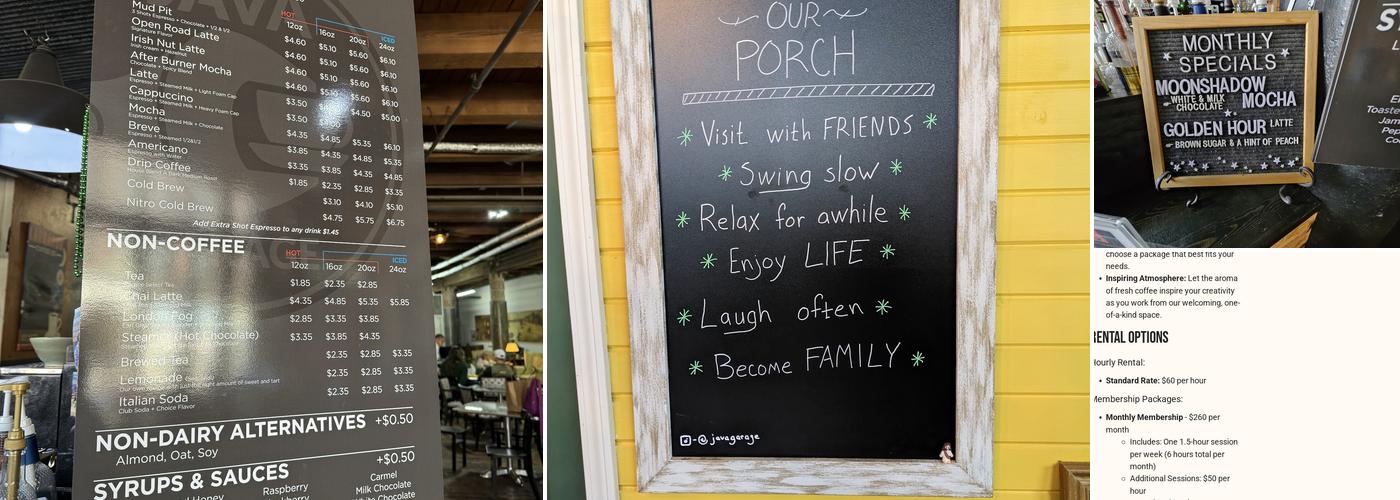 Mud Pit
3 Shots Espresso + Chocolate + 1/2 & 1/2
Open Road Latte
Signature Flavor
Irish Nut Latte
Irish cream + Hazelnut
After Burner Mocha
Chocolate + Spicy Blend
Latte
Espresso + Steamed Milk + Light Foam Cap
Cappuccino
Espresso + Steamed Milk + Heavy Foam Cap
Mocha
Espresso + Steamed Milk + Chocolate
Breve
Espresso + Steamed 1/2&1/2
Americano
Espresso with Water
Drip Coffee
House Blend & Dark Medium Roast
Cold Brew
Nitro Cold Brew
HOT ICED
12oz 16oz 20oz 24oz
$4.60 $5.10 $5.60 $6.10
$4.60 $5.10 $5.60 $6.10
$4.60 $5.10 $5.60 $6.10
$4.60 $5.10 $5.60 $6.10
$3.50 $4.50 $5.00
$3.50
$4.35 $4.85 $5.35 $6.10
$3.85 $4.35 $4.85 $5.35
$3.35 $3.85 $4.35 $4.85
$1.85 $2.35 $2.85 $3.35
$3.10 $4.10 $5.10
$4.75 $5.75 $6.75
Add Extra Shot Espresso to any drink $1.45
NON-COFFEE
HOT ICED
12oz 16oz 20oz 24oz
Tea $1.85 $2.35 $2.85
Chai Latte $4.35 $4.85 $5.35 $5.85
London Fog $2.85 $3.35 $3.85
Steamer (Hot Chocolate) $3.35 $3.85 $4.35
Brewed Tea $2.35 $2.85 $3.35
Lemonade $2.35 $2.85 $3.35
Our own recipe with just the right amount of sweet and tart
Italian Soda $2.35 $2.85 $3.35
Club Soda + Choice Flavor
NON-DAIRY ALTERNATIVES +$0.50
Almond, Oat, Soy
SYRUPS & SAUCES +$0.50
Honey Raspberry Carmel
Milk Chocolate
White Chocolate
OUR
PORCH
Visit with FRIENDS
Swing slow
Relax for awhile
Enjoy LIFE
Laugh often
Become FAMILY
-@javagarage
MONTHLY
SPECIALS
MOONSHADOW
WHITE & MILK
CHOCOLATE MOCHA
GOLDEN HOUR LATTE
BROWN SUGAR & A HINT OF PEACH
choose a package that best fits your
needs.
• Inspiring Atmosphere: Let the aroma
of fresh coffee inspire your creativity
as you work from our welcoming, one-
of-a-kind space.
RENTAL OPTIONS
Hourly Rental:
• Standard Rate: $60 per hour
Membership Packages:
• Monthly Membership - $260 per
month
Includes: One 1.5-hour session
per week (6 hours total per
month)
Additional Sessions: $50 per
hour